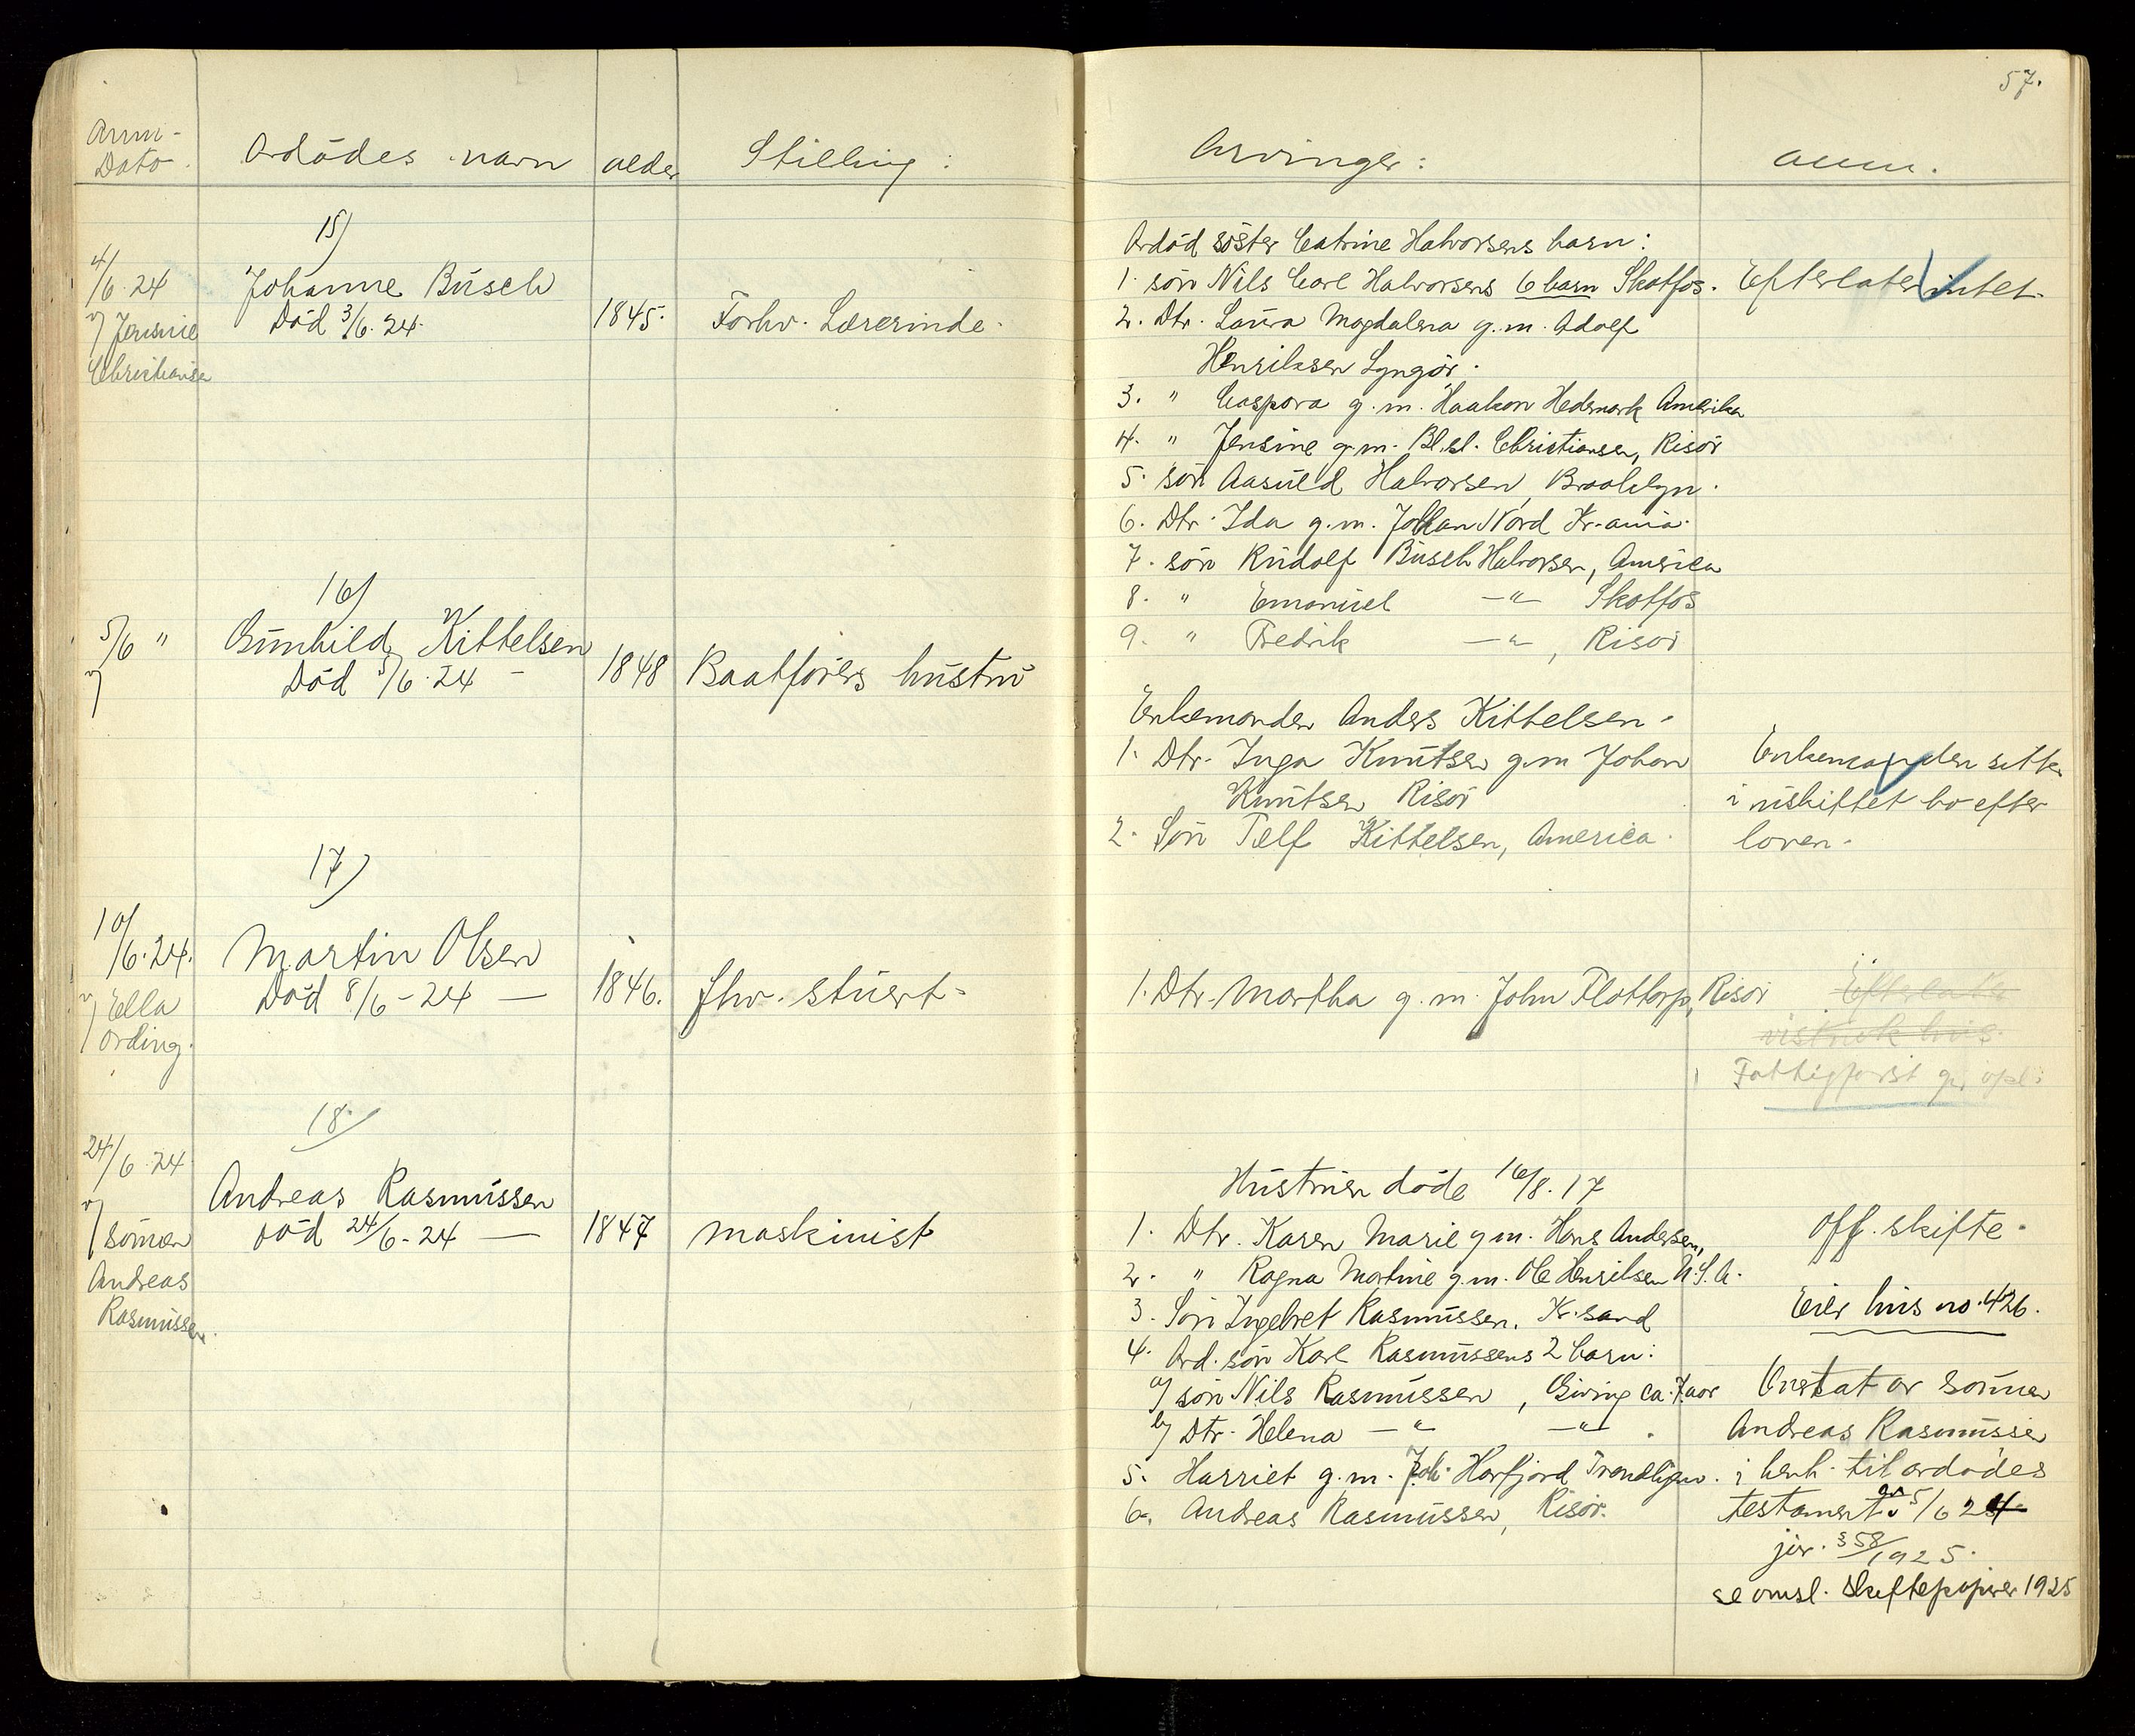 57.
Anm-
Dato.
Avdödes navn
alder
Stilling:
Arvinger:
anm.
15)
4/6.24
v/ Jensine
Christiansen
Johanne Busch
Död 3/6.24.
1845.
Forhv. Lærerinde.
Avdöd söster Catrine Halvorsens barn:
1. sön Nils Carl Halvorsens 6 barn Skotfos.
2. Dtr. Laura Magdalena g.m. Adolf
Henriksen Lyngör.
3. " Caspara g.m. Haakon Hedemark Amerika
4. " Jensine g.m. Bl.sl. Christiansen, Risör
5. sön Aasuld Halvorsen, Brooklyn.
6. Dtr. Ida g.m. Johan Nord Kr.ania.
7. sön Rudolf Busch Halvorsen, America
8. " Emanuel -"- Skotfos
9. " Fredrik -"-, Risör
Efterlater intet.
16)
5/6 "
v/
Gunhild Kittelsen
Död 5/6.24 -
1848
Baatförers hustru
Enkemanden Anders Kittelsen.
1. Dtr. Inga Knutsen g.m Johan
Knutsen Risör
2. Sön Tellf Kittelsen, America.
Enkemanden sitter
i uskiftet bo efter
loven.
17)
10/6.24.
v/ Ella
Ording.
Martin Olsen
Död 8/6-24 —
1846.
fhv. stuert.
1. Dtr. Martha g.m. John Flottorp, Risör
Efterlater
vistnok hus.
Fattigforst gir opl:
18/
24/6.24
v/
sönnen
Andreas
Rasmussen.
Andreas Rasmussen
död 24/6-24 —
1847
maskinist
Hustruen döde 16/8.17
1. Dtr. Karen Marie g m. Hans Andersen,
2. " Ragna Martine g.m. Ole Henriksen U.S.A.
3. Sön Ingebret Rasmussen, Kr.sand
4. Avd. sön Karl Rasmussens 2 barn:
a/ sön Nils Rasmussen, Giving ca. 7 aar
b/ Dtr. Helena -"- -"- .
5. Harriet g.m. Joh. Harfjord Trondhjem.
6. Andreas Rasmussen, Risör.
Off. skifte.
Eier hus no. 426.
Overtat av sönnen
Andreas Rasmussen
i henh. til avdödes
testament av 5/6 24
jvr. § 58/1925.
se omsl. skiftepapirer 1925